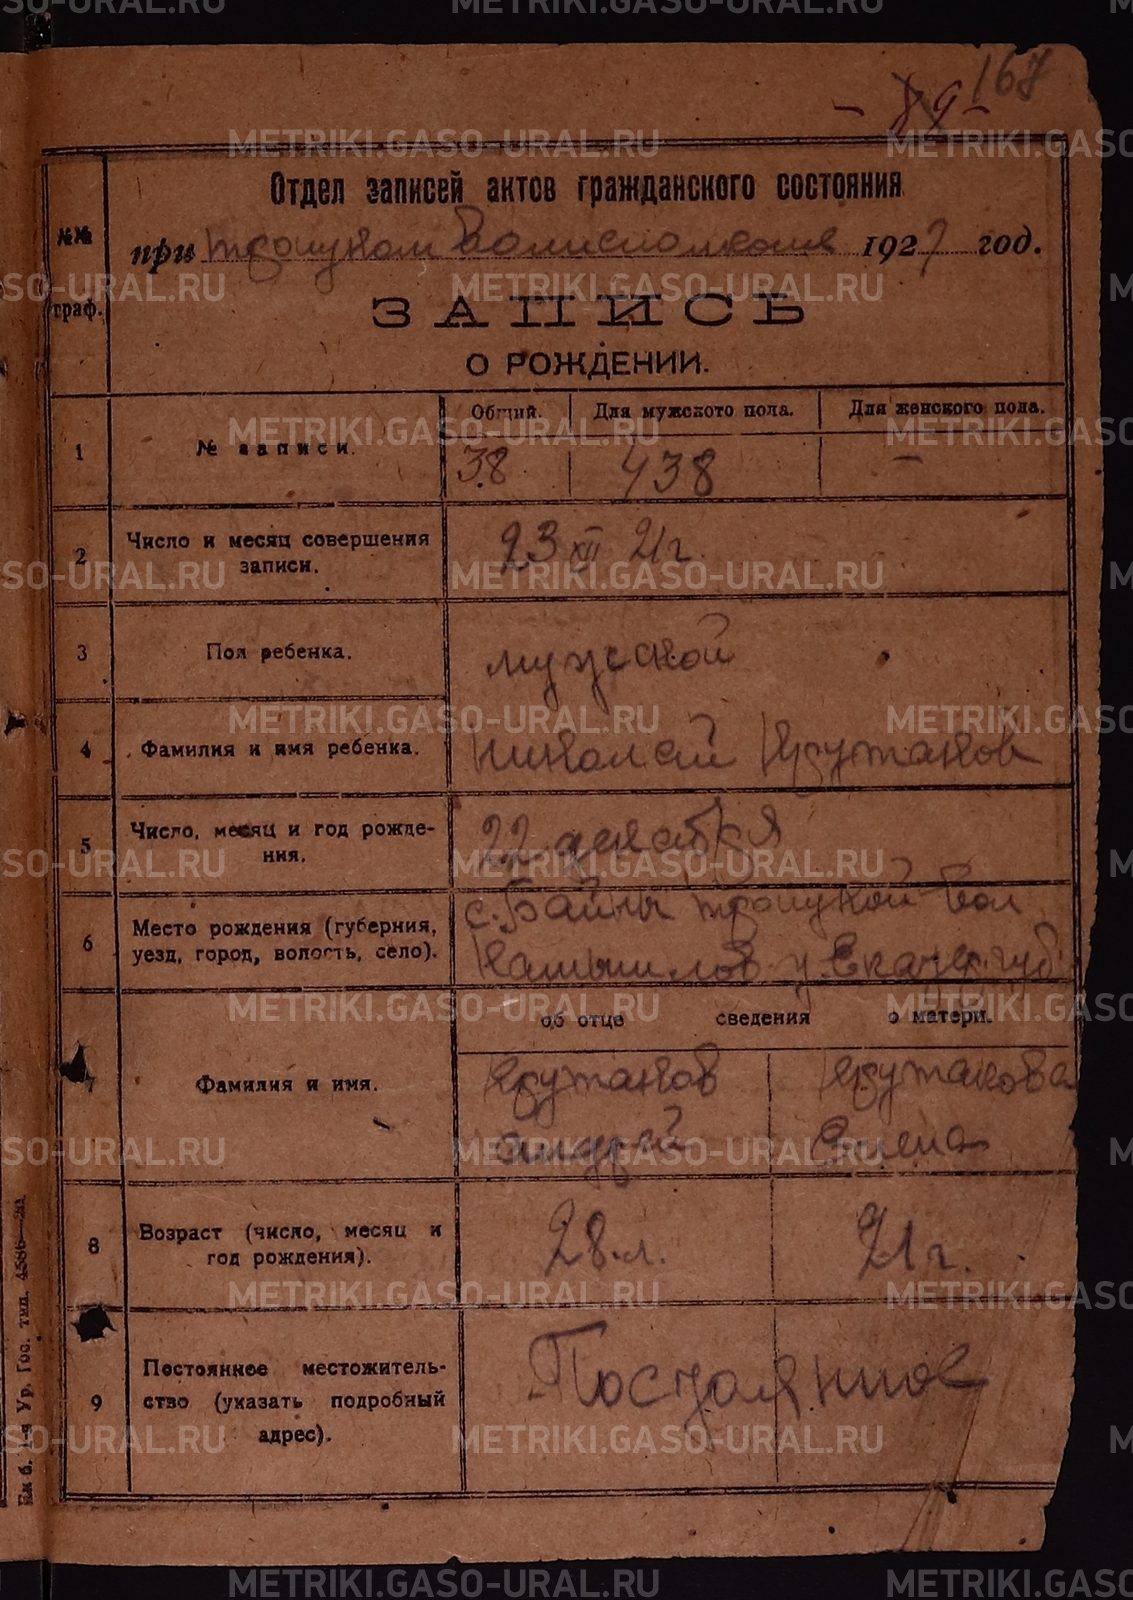 167
- 89 -
Отдел записей актов гражданского состояния
№№ граф.
при Троицком Волисполкоме 1921 год.
ЗАПИСЬ
О РОЖДЕНИИ.
Общий. Для мужского пола. Для женского пола.
1 № записи. 38 438 —
2 Число и месяц совершения записи. 23 XII 21 г.
3 Пол ребенка. мужской
4 Фамилия и имя ребенка. Николай
5 Число, месяц и год рождения. 22 декабря
6 Место рождения (губерния, уезд, город, волость, село). с. Байны Троицкой вол
Камышлов. у. Екатер. губ
об отце сведения о матери.
7 Фамилия и имя.
Андрей Елена
8 Возраст (число, месяц и год рождения). 28 л. 21 г.
9 Постоянное местожительство (указать подробный адрес). Постоянное
Ур. Гос. тип. 4586—21
METRIKI.GASO-URAL.RU